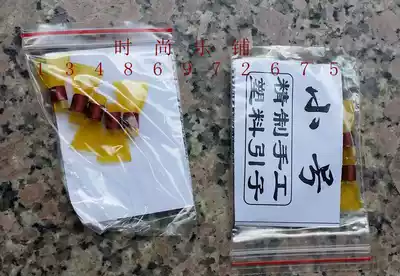 时尚乐铺
13486972675
小号
精制手工
塑料引子